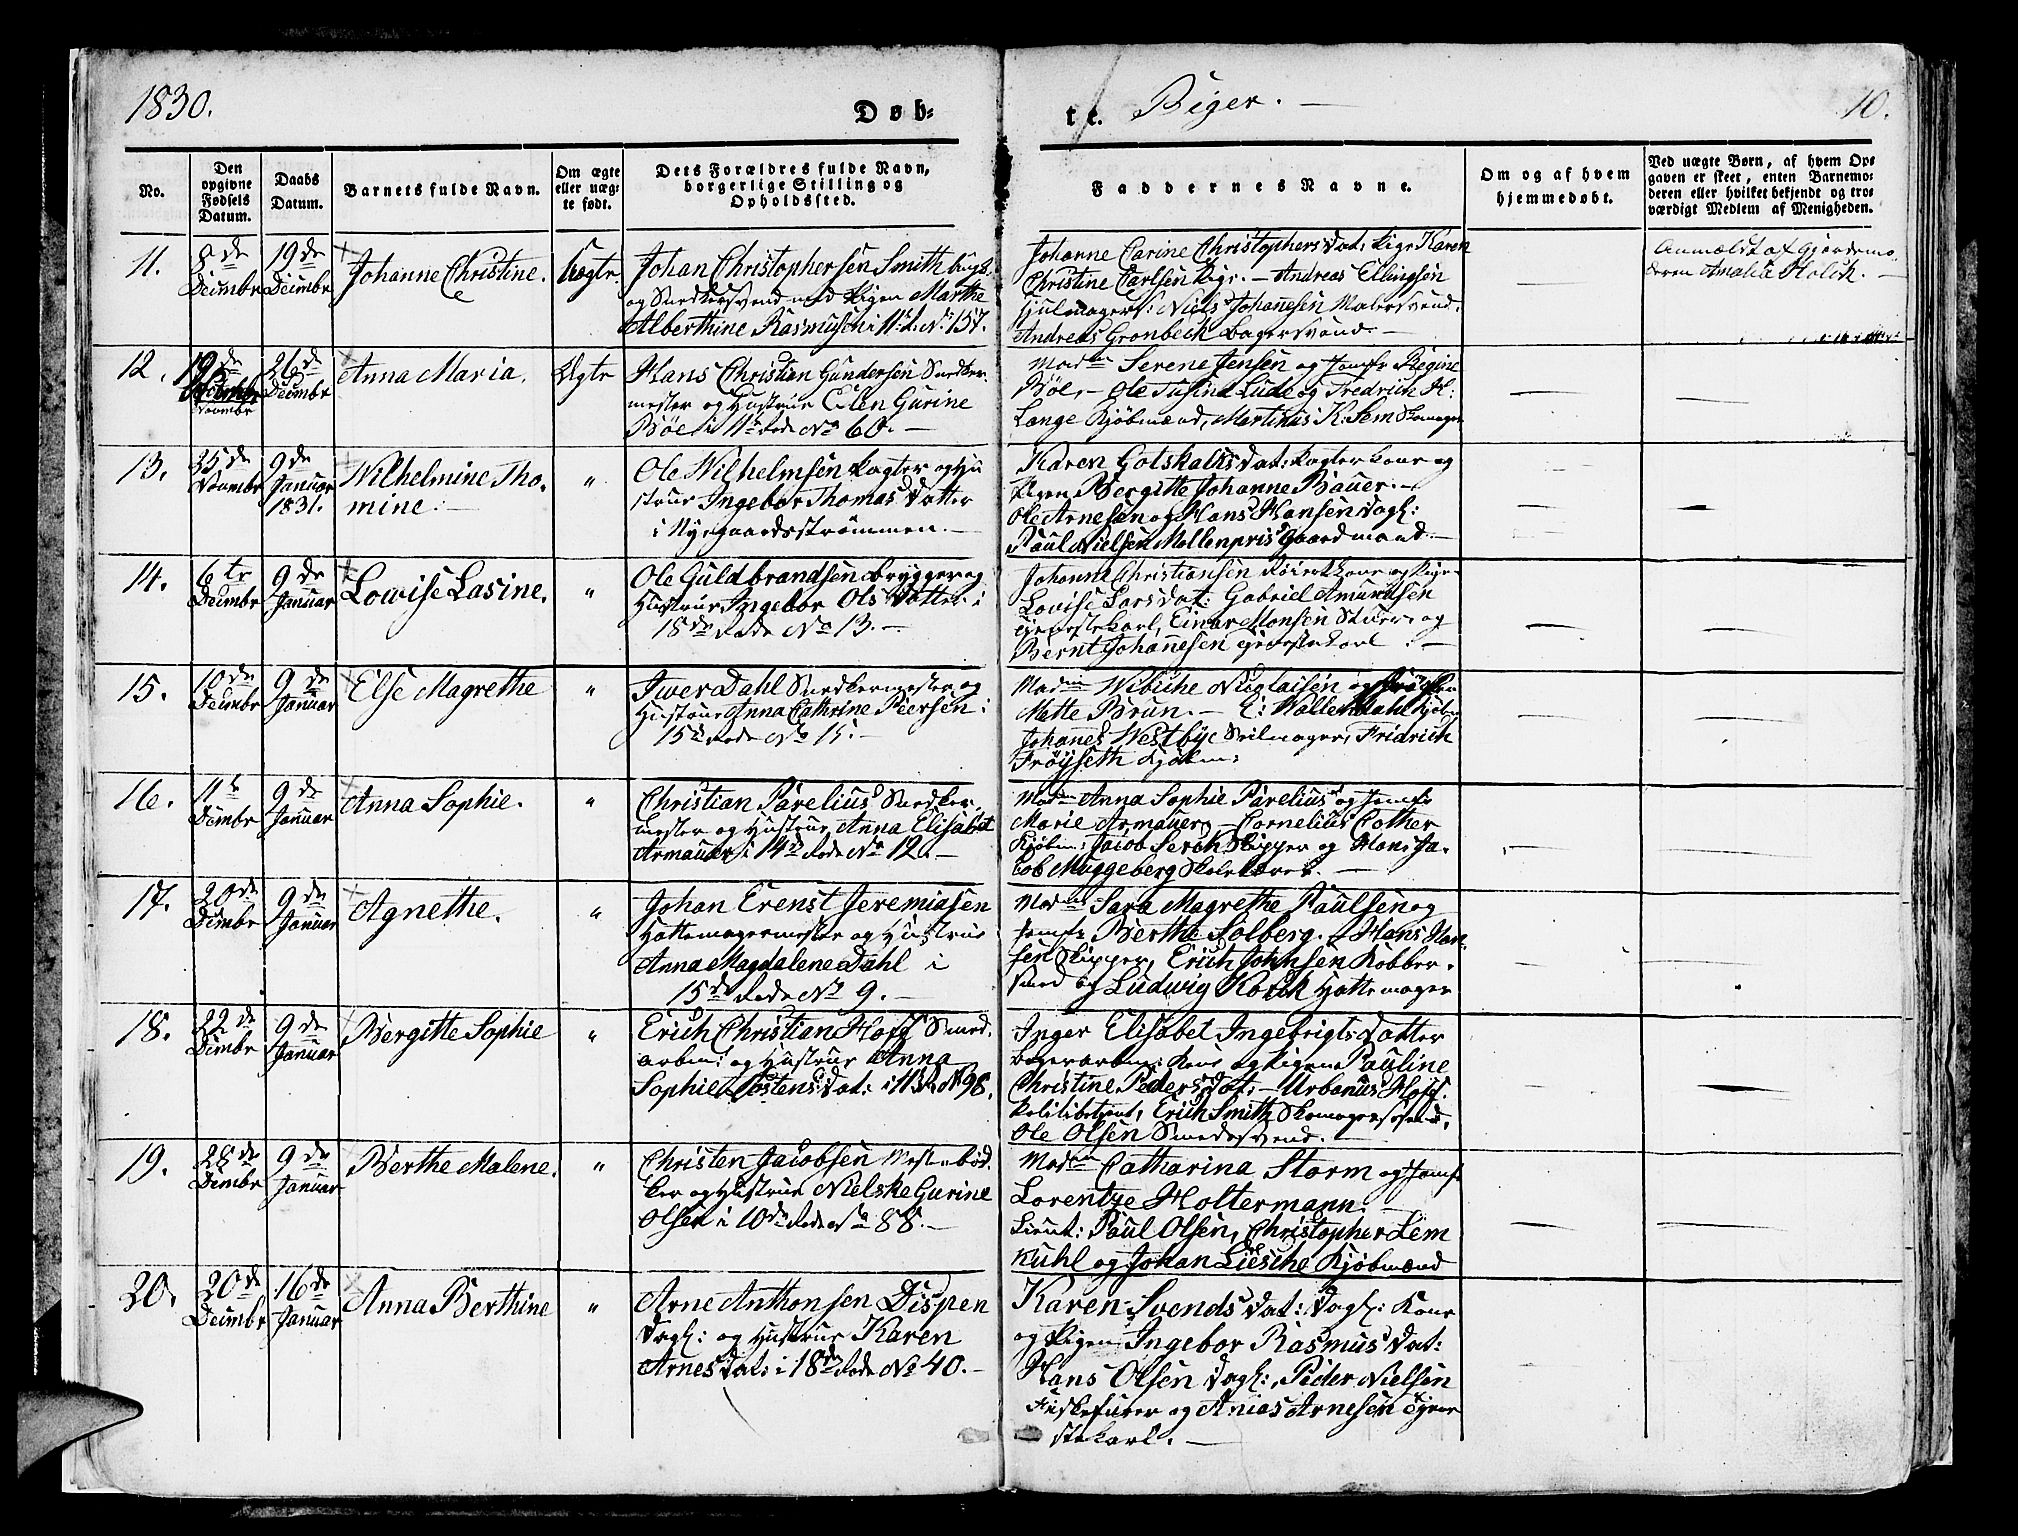 1830.
Døb-
te.
Piger. —
10.
No.
Den opgivne Fødsels Datum.
Daabs Datum.
Barnets fulde Navn.
Om ægte eller uægte født.
Dets Forældres fulde Navn, borgerlige Stilling og Opholdssted.
Faddernes Navne.
Om og af hvem hjemmedøbt.
Ved uægte Børn, af hvem Opgaven er skeet, enten Barnemoderen eller hvilket bekjendt og troværdigt Medlem af Menigheden.
11.
8de
Decmbr
19de
Decmbr
Johanne Christine.
Uægte
Johan Christophersen Smith
og Snedkersvend med Pigen Marthe
Alberthine Rasmusen i 11: R. No 157.
Johanne Carine Christophersdat: Pige Karen
Christine Carlsen Pige. — Andreas Ellingsen
Hjulmagers: Niels Johannesen Malersvend.
Andreas Gronbech Bagersvend. —
Anmeldt af Gjordemo-
deren Amalie Holck. —
12.
19de
Novmbr
26de
Decmbr
Anna Maria.
Ægte
Hans Christian Gundersen Snedker-
mester og Hustrue Elen Gurine
Böe i 11te Rode No 60. —
Madm Serene Jensen og Jomfr Regine
Böe, — Ole Tusina Lude og Fredrich H:
Lange Kjöbmænd, Martinus K: Sem Skomager
13.
25de
Novmbr
9de
Januar
1831.
Wilhelmine Tho-
mine. —
"
Ole Wilhelmsen Vægter og Hu
strue Ingebor Thomasdatter
i Nygaardsströmmen. —
Karen Gotskalksdat: Vægterkone og
Pigen Bergitte Johanne Bauer. —
Ole Arnesen og Hans Hansen Dagl:
Paul Nielsen Möllenpris Gaardmand. —
14.
6te
Decmbr
9de
Januar
Lovise Lasine.
"
Ole Guldbrandsen Brygger og
Hustrue Ingebor Olsdatter i
18de Rode No 13. —
Johanne Christiansen Kone og Pige
Lovise Larsdat: Gabriel Amundsen
Tjenestekarl, Einar Monsen Stuer og
Bernt Johannesen Tjenestekarl : —
15.
10de
Decmbr
9de
Januar
Else Magrethe
"
Iver Dahl Snedkermester og
Hustrue Anna Cathrine Peersen i
15de Rode No 15. —
Madm Wibiche Nicolaisen og Fröken
Mette Brun. — E: Wallem Dahl Kjöbm
Johannes Westbye Seilmager, Fridrich
Fröyseth Kjöbm:
16.
11te
Dcmbr
9de
Januar
Anna Sophie.
"
Christian Parelius Snedker-
mester og Hustrue Anna Elisabet
Armauer i 14de Rode No 12. —
Madm Anna Sophie Parelius og Jomfr
Marie Armauer, — Cornelius Cather
Kjöbm: Jacob Serck Skipper og Hans Ja-
cob Muggeberg Skolelærer. —
17.
20de
Dcmbr
9de
Januar
Agnethe.
"
Johan Erenst Jeremiasen
Hattemagermester og Hustrue
Anna Magdalene Dahl i
15de Rode No 9. —
Madm Sara Magrethe Paulsen og
Jomfr Berthe Solberg. Hans Han-
sen Skipper, Erich Johnsen Kobber-
smed og Ludwig Hattemager
18.
22de
Dcmbr
9de
Januar
Bergitte Sophie
"
Erich Christian Hoff Smed-
arbm: og Hustrue Anna
Sophie Tostensdat: i 11te R No 98.
Inger Elisabet Ingebrigtsdatter
Kone og Pigen Pauline
Christine Pedersdat: — Urbanus Hoff.
Erich Smith Skomagersvend,
Ole Olsen Smedesvend. —
19.
28de
Dcmbr
9de
Januar
Berthe Malene.
"
Christen Jacobsen Mesterbød-
ker og Hustrue Nielske Gurine
Olsen i 10de Rode No 88. —
Madm Catharina Storm og Jomf:
Lorentze Holtermann. —
Lieut: Paul Olsen, Christopher Lem
kuhl og Johan Liesche Kjöbmænd
20.
20de
Decmbr
16de
Januar
Anna Berthine
"
Arne Anthonsen Dispen
Dagl: og Hustrue Karen
Arnesdat: i 18de Rode No 40. —
Karen Svendsdat: Dagl: Kone
og Pigen Ingebor Rasmusdat:
Hans Olsen Dagl:, Peder Nielsen
Fiskefører og Anias Arnesen Tjene
stekarl. —